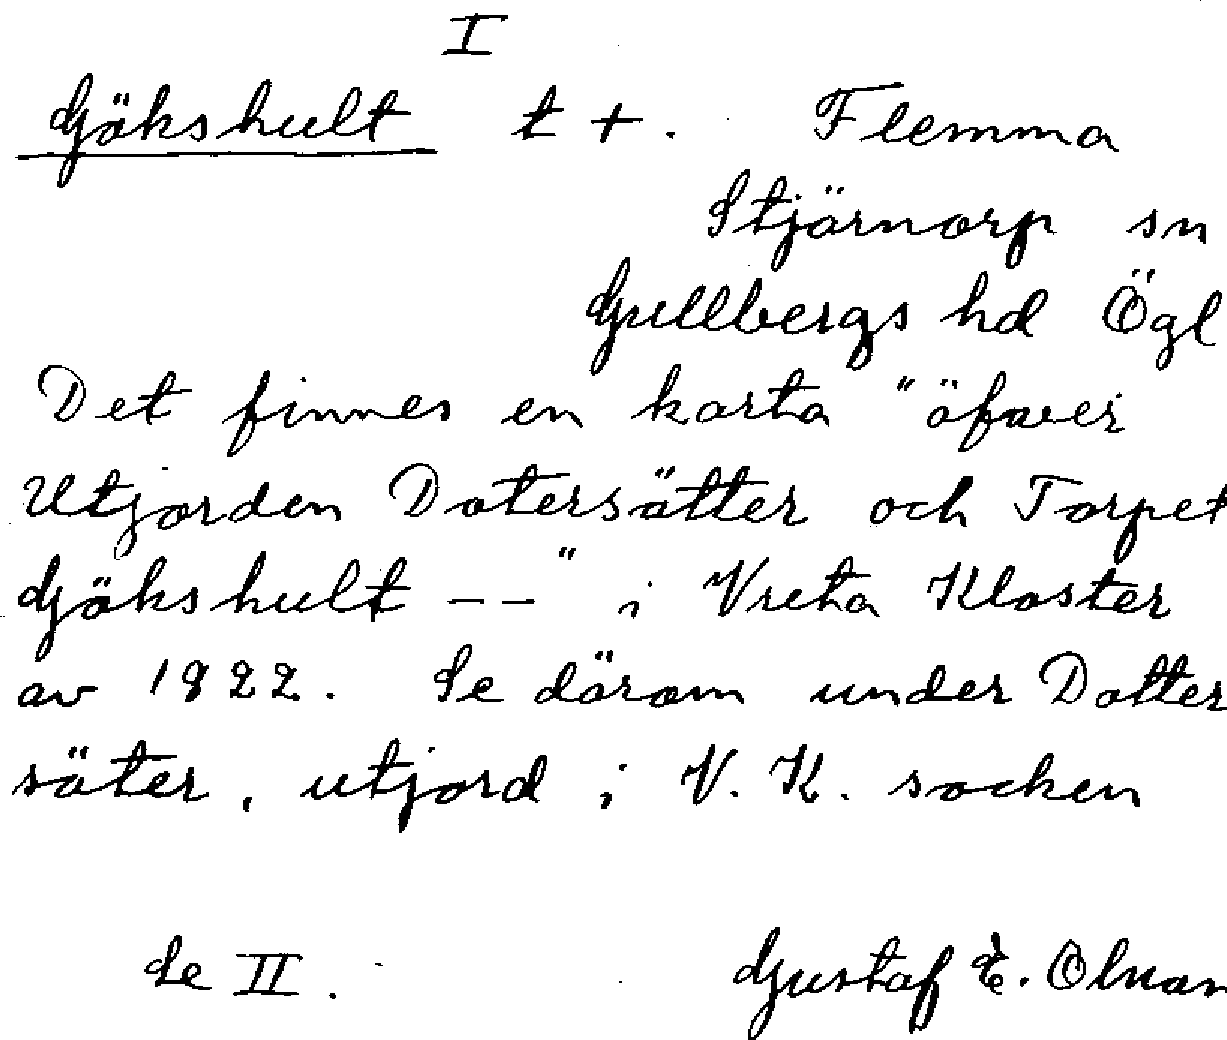 I
Gökshult t +. Flemma
Stjärnorp sn
Gullbergs hd Ögl
Det finnes en karta "öfwer
Utjorden Dotersätter och Torpet
Gökshult -- " i Vreta Kloster
av 1822. Se därom under Dotter
säter, utjord i V. K. socken
Se II. Gustaf E.